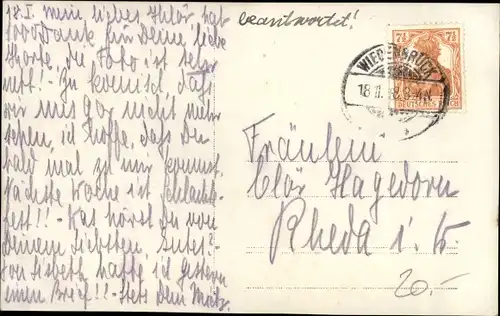 18.I. Mein liebes Klör, hab
1000 Dank für Deine liebe
Karte, die Foto ist sehr
nett! Zu komisch, daß
wir uns gar nicht mehr
sehen, ich hoffe, daß Du
bald mal zu mir kommst.
Nächste Woche ist Schlacht-
fest!! - Was hörst Du von
Deinem Liebsten, Gutes?
Von Lisbeth hatte ich gestern
einen Brief!! - Stets Dein Matz.
beantwortet!
7½ 7½
DEUTSCHES REICH
WIEDENBRÜCK
18.1.18. 3-4N
Fräulein
Clär Hagedorn
Rheda i. W.
20.-